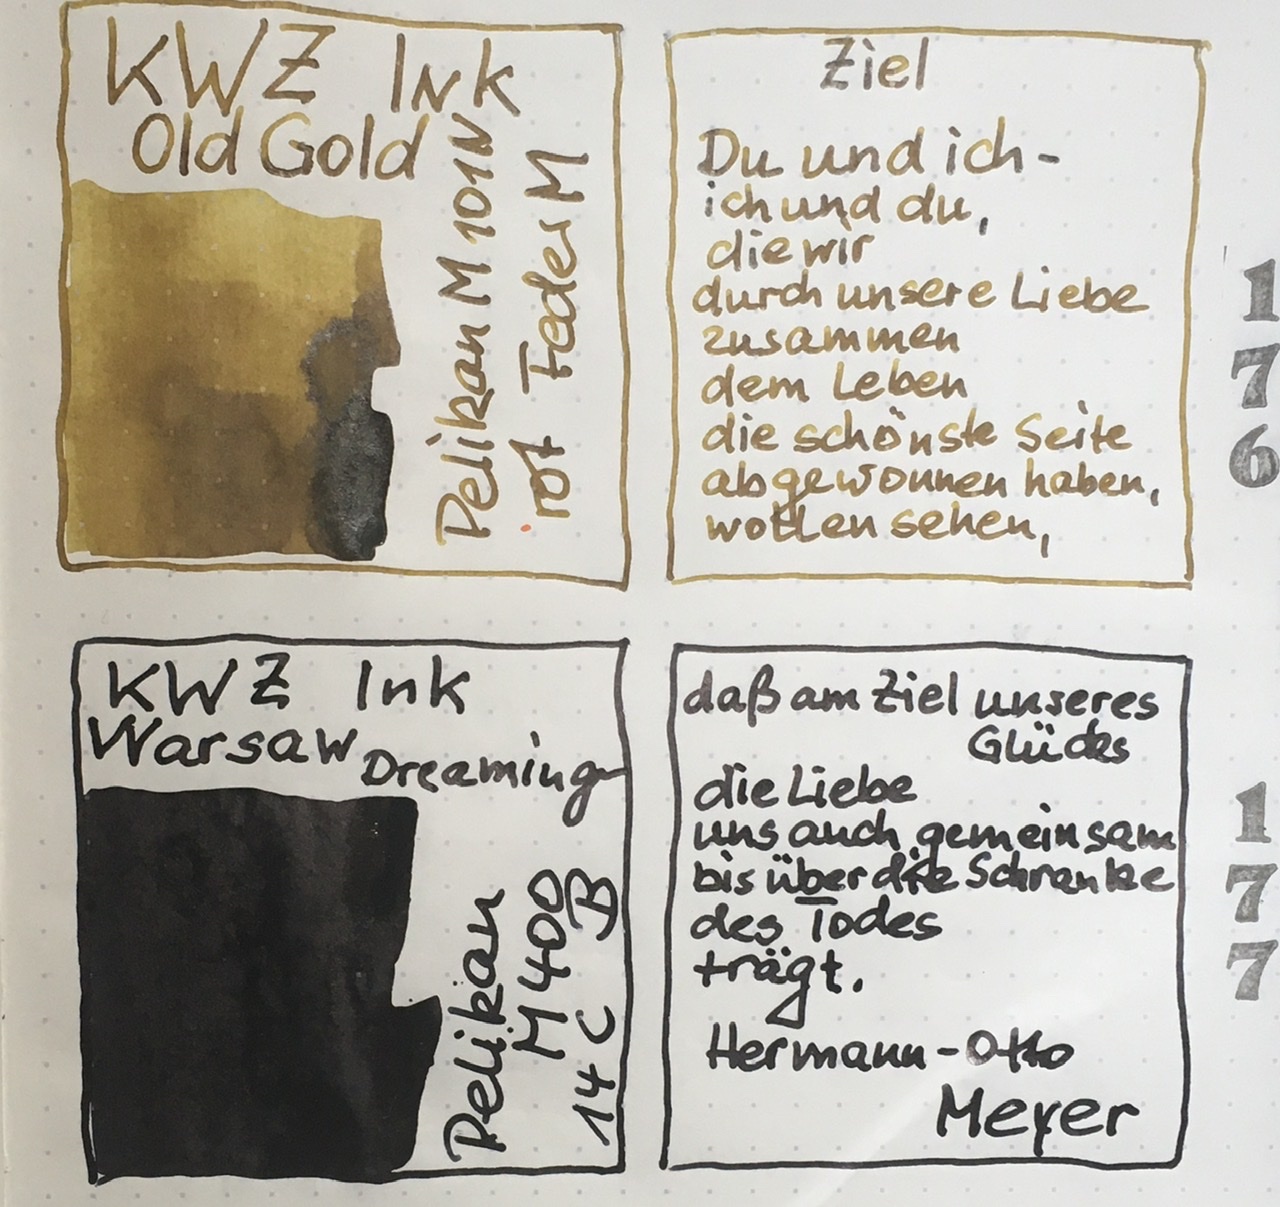 KWZ Ink
Old Gold
Pelikan M101N
rot Feder M
Ziel
Du und ich-
ich und du,
die wir
durch unsere Liebe
zusammen
dem Leben
die schönste Seite
abgewonnen haben,
wollen sehen,
176
KWZ Ink
Warsaw Dreaming
Pelikan
M400
14 C B
daß am Ziel unseres
Glücks
die Liebe
uns auch gemeinsam
bis über die Schranke
des Todes
trägt.
Hermann-Otto
Meyer
177